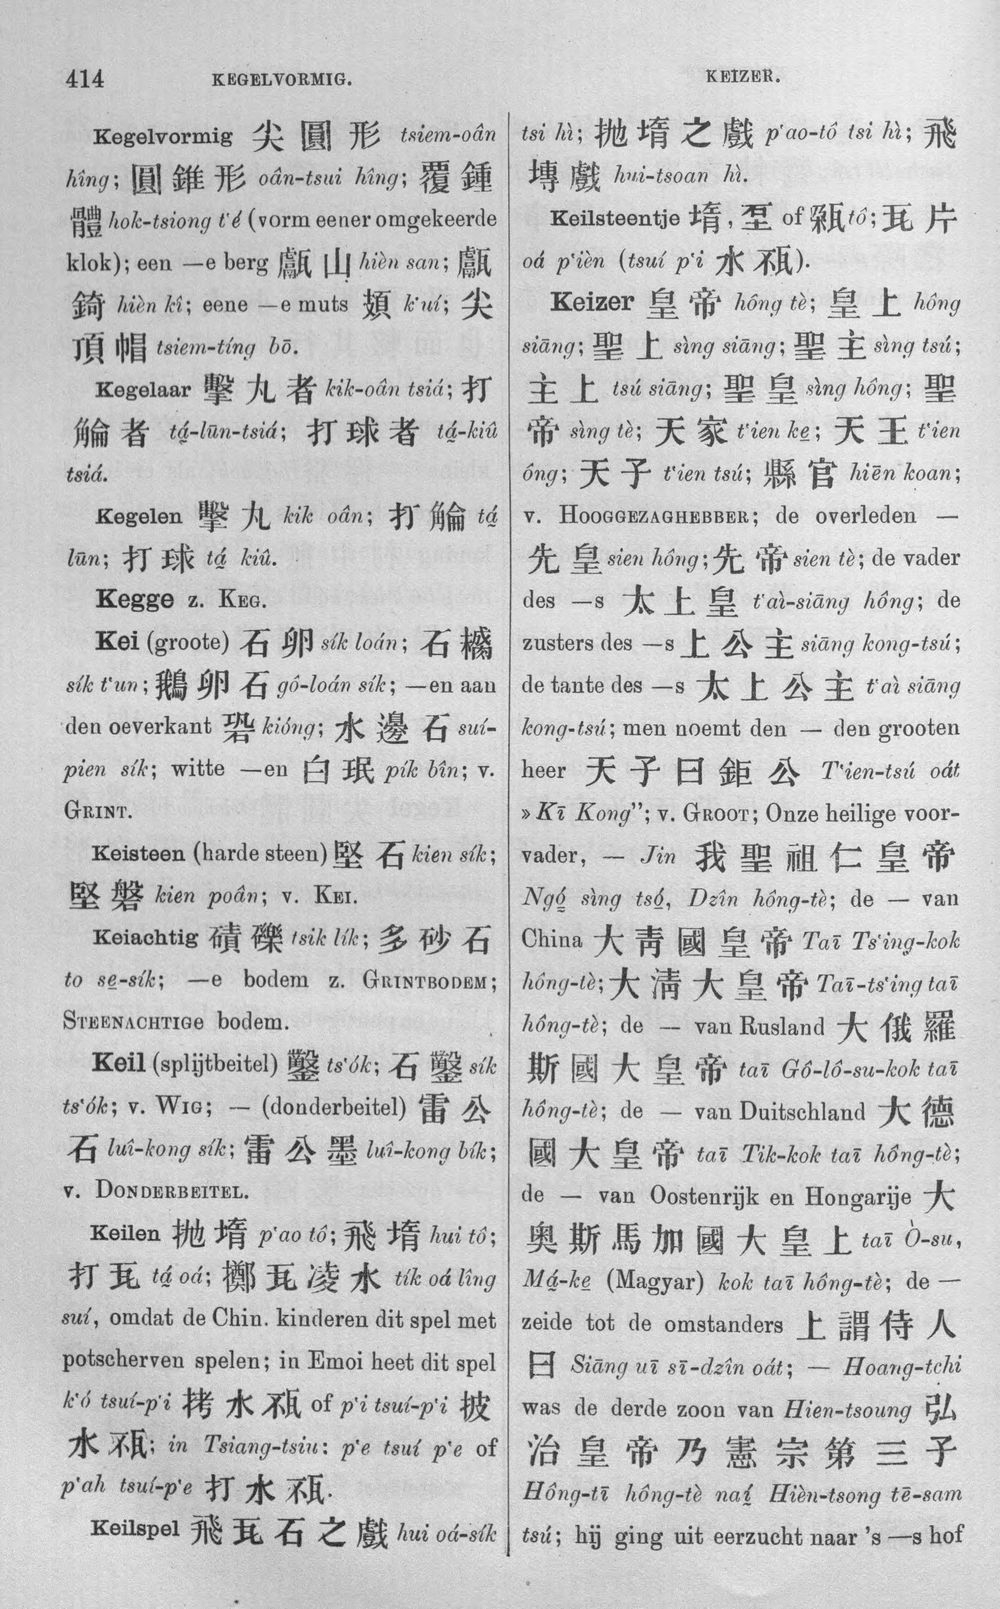 414
KEGELVORMIG.
KEIZER.
Kegelvormig 尖圓形 tsiem-oân
hîng; 圓錐形 oân-tsui hîng; 覆鍾
體 hok-tsiong t‘é (vorm eener omgekeerde
klok); een —e berg 甗山 hièn san; 甗
錡 hièn kî; eene —e muts 頍 k‘uí; 尖
頂帽 tsiem-tíng bō.
Kegelaar 擊丸者 kik-oân tsiá; 打
者 tá̤-lūn-tsiá; 打球者 tá̤-kiû
tsiá.
Kegelen 擊丸 kik oân; 打 tá̤
lūn; 打球 tá̤ kiû.
Kegge z. KEG.
Kei (groote) 石卵 sík loán; 石
sík t‘un; 鵝卵石 gô-loán sík; —en aan
den oeverkant 碧 kióng; 水邊石 suí-
pien sík; witte —en 白珉 pík bîn; v.
GRINT.
Keisteen (harde steen) 堅石 kien sík;
堅磐 kien poân; v. KEI.
Keiachtig 磧礫 tsik lík; 多砂石
to se̤-sík; —e bodem z. GRINTBODEM;
STEENACHTIGe bodem.
Keil (splijtbeitel) 鑿 ts‘ók; 石鑿 sík
ts‘ók; v. WIG; — (donderbeitel) 雷公
石 luî-kong sík; 雷公墨 luî-kong bík;
v. DONDERBEITEL.
Keilen 拋堶 p‘ao tô; 飛堶 hui tô;
打瓦 tá̤ oá; 擲瓦凌水 tík oá lîng
suí, omdat de Chin. kinderen dit spel met
potscherven spelen; in Emoi heet dit spel
k‘ó tsuí-p‘i 拷水 of p‘i tsuí-p‘i 披
水; in Tsiang-tsiu: p‘e tsuí p‘e of
p‘ah tsuí-p‘e 打水.
Keilspel 飛瓦石之戲 hui oá-sík
tsi hì; 拋堶之戲 p‘ao-tô tsi hì; 飛
塼戲 hui-tsoan hì.
Keilsteentje 堶, of tô; 瓦片
oá p‘ièn (tsuí p‘i 水).
Keizer 皇帝 hông tè; 皇上 hông
siāng; 聖上 sìng siāng; 聖主 sìng tsú;
主上 tsú siāng; 聖皇 sìng hông; 聖
帝 sìng tè; 天家 t‘ien ke̤; 天王 t‘ien
ông; 天子 t‘ien tsú; 縣官 hiēn koan;
v. HOOGGEZAGHEBBER; de overleden —
先皇 sien hông; 先帝 sien tè; de vader
des —s 太上皇 t‘aì-siāng hông; de
zusters des —s 上公主 siāng kong-tsú;
de tante des —s 太上公主 t‘aì siāng
kong-tsú; men noemt den — den grooten
heer 天子曰鉅公 T‘ien-tsú oát
»Kī Kong”; v. GROOT; Onze heilige voor-
vader, — Jin 我聖祖仁皇帝
Ngó̤ sìng tsó̤, Dzîn hông-tè; de — van
China 大靑國皇帝 Taī Ts‘ing-kok
hông-tè; 大淸大皇帝 Taī-ts‘ing taī
hông-tè; de — van Rusland 大俄羅
斯國大皇帝 taī Gô-lô-su-kok taī
hông-tè; de — van Duitschland 大德
國大皇帝 taī Tik-kok taī hông-tè;
de — van Oostenrijk en Hongarije 大
奧斯馬加國大皇上 taī Ò-su,
Má̤-ke̤ (Magyar) kok taī hông-tè; de —
zeide tot de omstanders 上謂侍人
曰 Siāng uī sī-dzîn oát; — Hoang-tchi
was de derde zoon van Hien-tsoung 弘
治皇帝乃憲宗第三子
Hông-tī hông-tè naí̤ Hièn-tsong tē-sam
tsú; hij ging uit eerzucht naar ’s —s hof